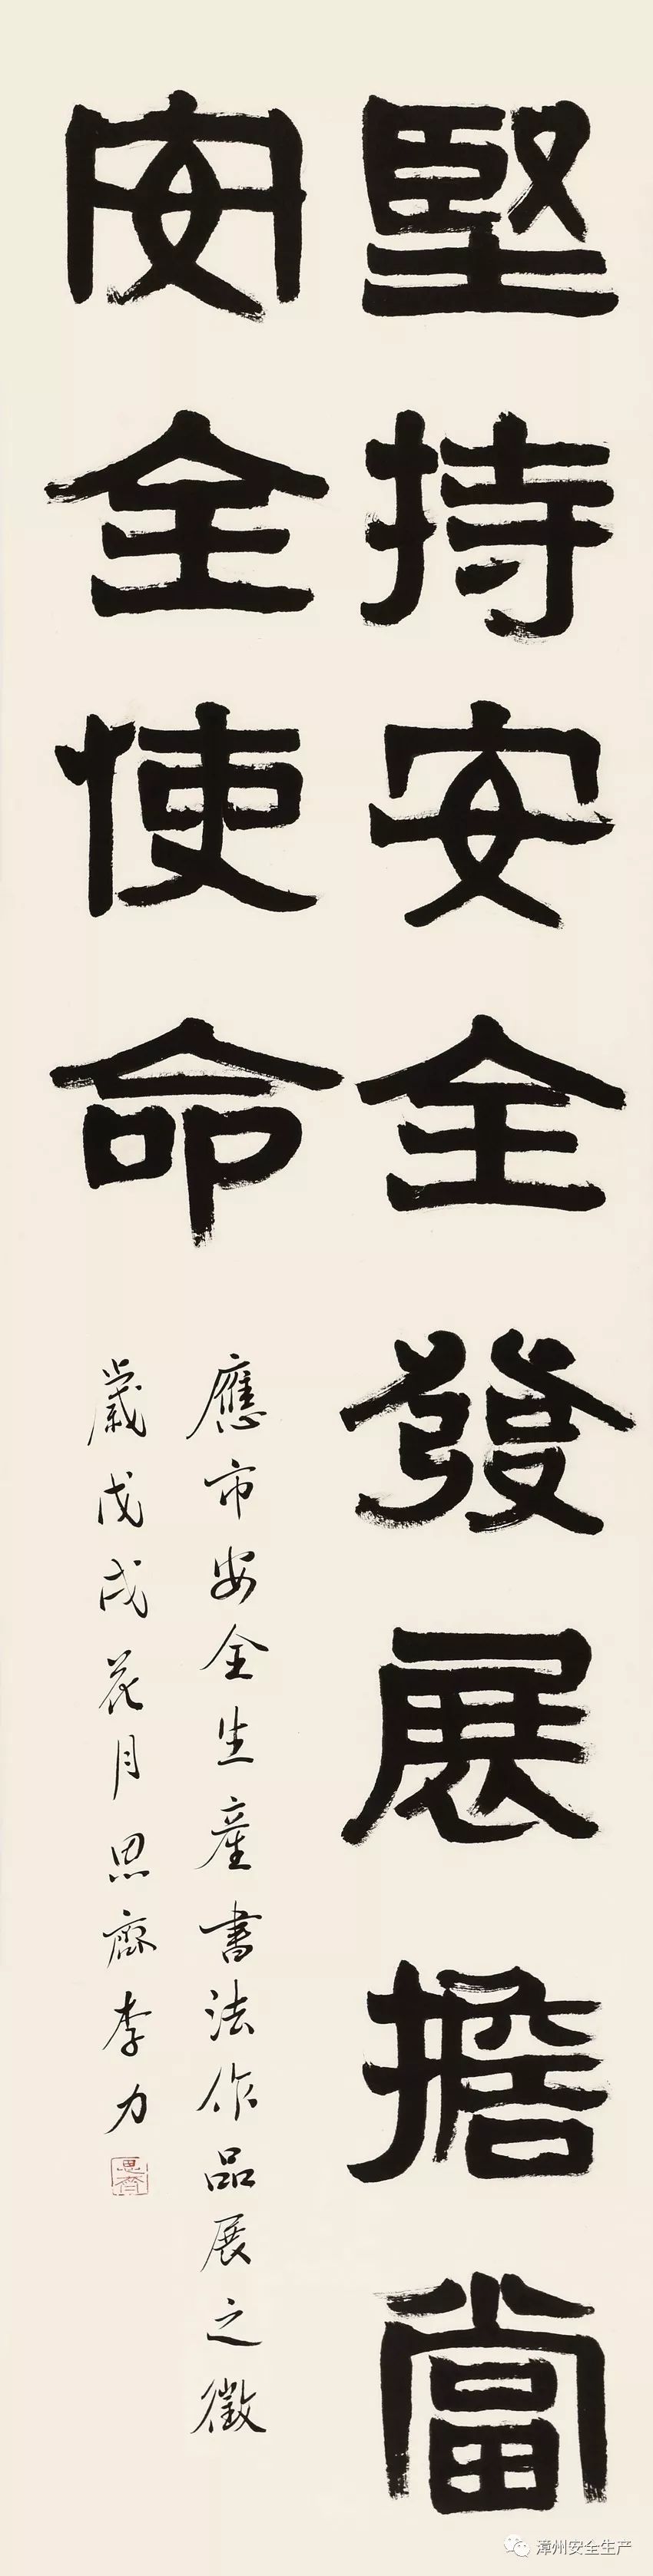 堅持安全發展擔當
安全使命
應市安全生產書法作品展之徵
歲戊戌花月思齋李力
思齋
漳州安全生产